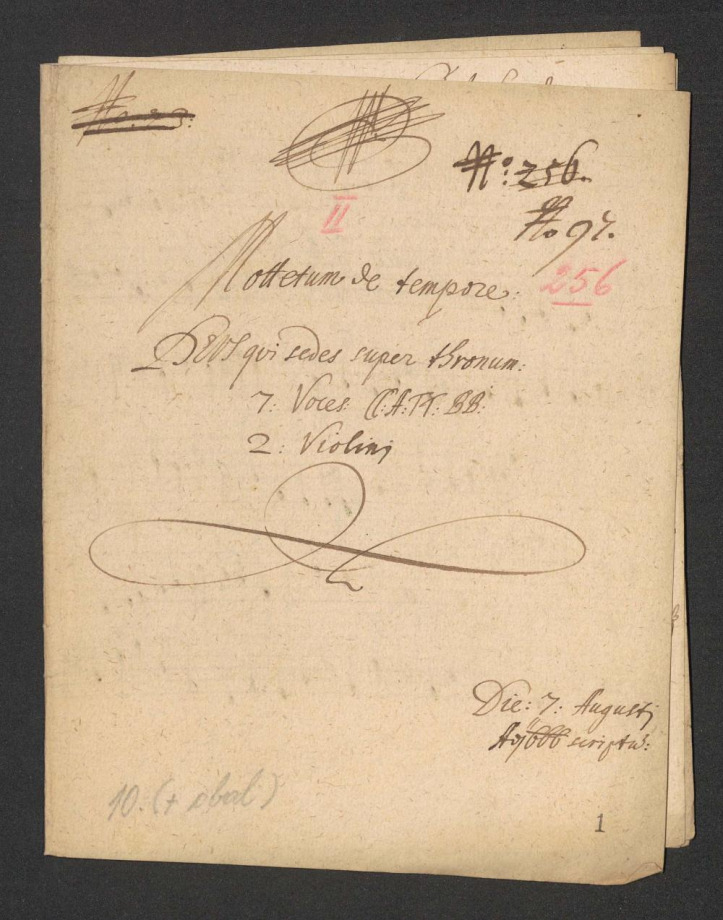 No. 23:
No: 256.
II
No 97.
Mottetum de tempore:
256
DEUS qui sedes super thronum:
7: Voces CC: A: TT: BB:
2: Violini
Die: 7: Augusti
scriptũ:
10. (+ obal)
1